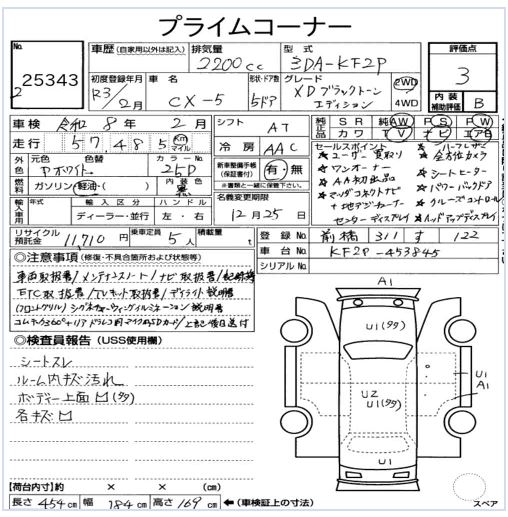 プライムコーナー
No.
25343
2
車歴 (自家用以外は記入)
排気量
2200cc
型式
3DA-KF2P
評価点
3
初度登録年月
R3/2月
車名
CX-5
形状・ドア数
5ドア
グレード
XD ブラックトーン
エディション
2WD
4WD
内装
補助評価
B
車検 令和 8年 2月
走行 57,485 km マイル
シフト AT
冷房 AAC
純正品
SR 純AW PS PW
カワ TV ナビ エアB
外色
元色
色替
カラーNo.
Pホワイト
25D
内装色
黒
燃料
ガソリン・軽油・( )
新車整備手帳
(保証書付)
有・無
※書類と一緒に保管下さい。
名義変更期限
12月25日
セールスポイント
★ユーザー買取り
★ワンオーナー
★AA初出品
★マツダコネクトナビ
+地デジカーナビ
センターディスプレイ
★全方位カメラ
★シートヒーター
★パワーバックドア
★クルーズコントロール
★ヘッドアップディスプレイ
輸入車
年式
輸入区分
ディーラー・並行
ハンドル
左・右
リサイクル預託金
11,710円
乗車定員
5人
積載量
t
登録No.
前橋 311 す 122
車台No.
KF2P-453845
シリアルNo.
◎注意事項(修復・不具合箇所および状態等)
車両取扱書/メンテナンスノート/ナビ取扱書/
ETC取扱書/
説明書
上記後日送付
◎検査員報告(USS使用欄)
シートスレ
ルーム内キズ汚れ
ボディー上面凹(多)
各キズ凹
A1
U1(多)
U2
U1(多)
U1
A1
U1
スペア
【荷台内寸】約 × × (cm)
長さ 454cm 幅 184cm 高さ 169cm ←(車検証上の寸法)